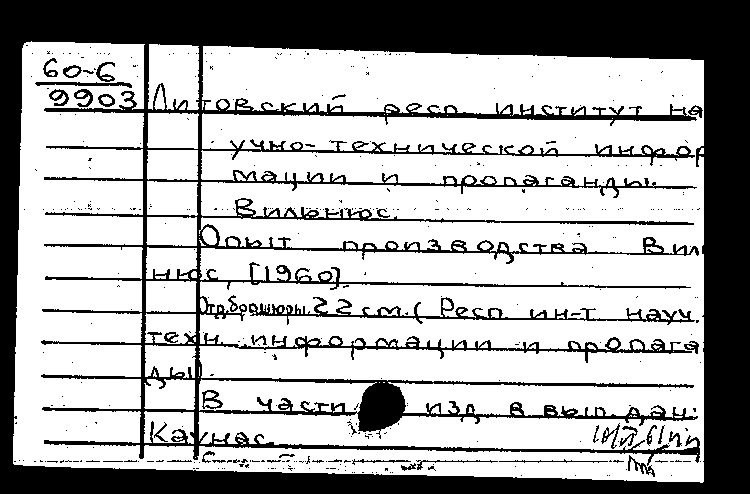 60-6
9903
Литовский респ. институт на
учно-технической инфор
мации и пропаганды.
Вильнюс.
Опыт производства Виль
нюс, [1960].
Отд. брошюры. 22 см. (Респ. ин-т науч.
техн. информации и пропага
ды).
В части изд. в вып. дан:
Каунас.